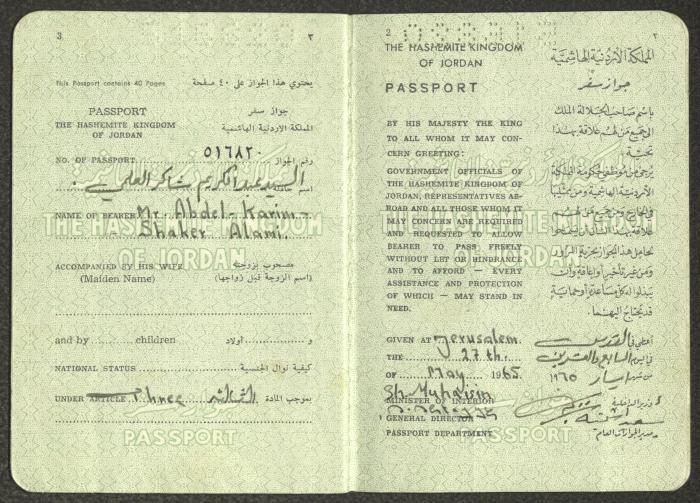 3
٣
This Passport contains 40 Pages
يحتوي هذا الجواز على ٤٠ صفحة
PASSPORT
جواز سفر
THE HASHEMITE KINGDOM
OF JORDAN
المملكة الاردنية الهاشمية
NO. OF PASSPORT ٥١٦٨٢٠ رقم الجواز
السيد عبدالكريم شاكر العلمي
NAME OF BEARER Mr. Abdel-Karim
Shaker Alami.
ACCOMPANIED BY HIS WIFE
(Maiden Name)
مصحوب بزوجته
(اسم الزوجة قبل زواجها)
and by children
و اولاد
NATIONAL STATUS كيفية نوال الجنسية
UNDER ARTICLE three الثالثة بموجب المادة
THE HASHEMITE KINGDOM
OF JORDAN
PASSPORT
2
٢
THE HASHEMITE KINGDOM
OF JORDAN
PASSPORT
المملكة الأردنية الهاشمية
جواز سفر
BY HIS MAJESTY THE KING
TO ALL WHOM IT MAY CON-
CERN GREETING:
GOVERNMENT OFFICIALS OF
THE HASHEMITE KINGDOM OF
JORDAN, REPRESENTATIVES AB-
ROAD AND ALL THOSE WHOM IT
MAY CONCERN ARE REQUIRED
AND REQUESTED TO ALLOW
BEARER TO PASS FREELY
WITHOUT LET OR HINDRANCE
AND TO AFFORD — EVERY
ASSISTANCE AND PROTECTION
OF WHICH — MAY STAND IN
NEED.
باسم صاحب الجلالة الملك
الى جميع من لهم علاقة بهذا
تحية
يرجى من موظفي حكومة المملكة
الأردنية الهاشمية ومن ممثليها
في الخارج ومن جميع من لهم
تحامل هذا الجواز بحرية المرور
ومن غير تأخير أو إعاقة وأن
يبذلوا له كل مساعدة أو حماية
قد يحتاج اليهما.
GIVEN AT Jerusalem.
THE 27th.
OF May 1965
أعطي في القدس
في اليوم السابع والعشرين
من شهر ايار ١٩٦٥
MINISTER OF INTERIOR
وزير الداخلية
GENERAL DIRECTOR
PASSPORT DEPARTMENT
مدير الجوازات العام
THE HASHEMITE KINGDOM
OF JORDAN
PASSPORT